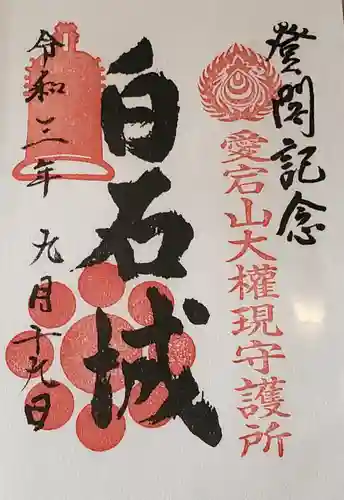 登閣記念
愛宕山大權現守護所
白石城
令和三年九月十九日